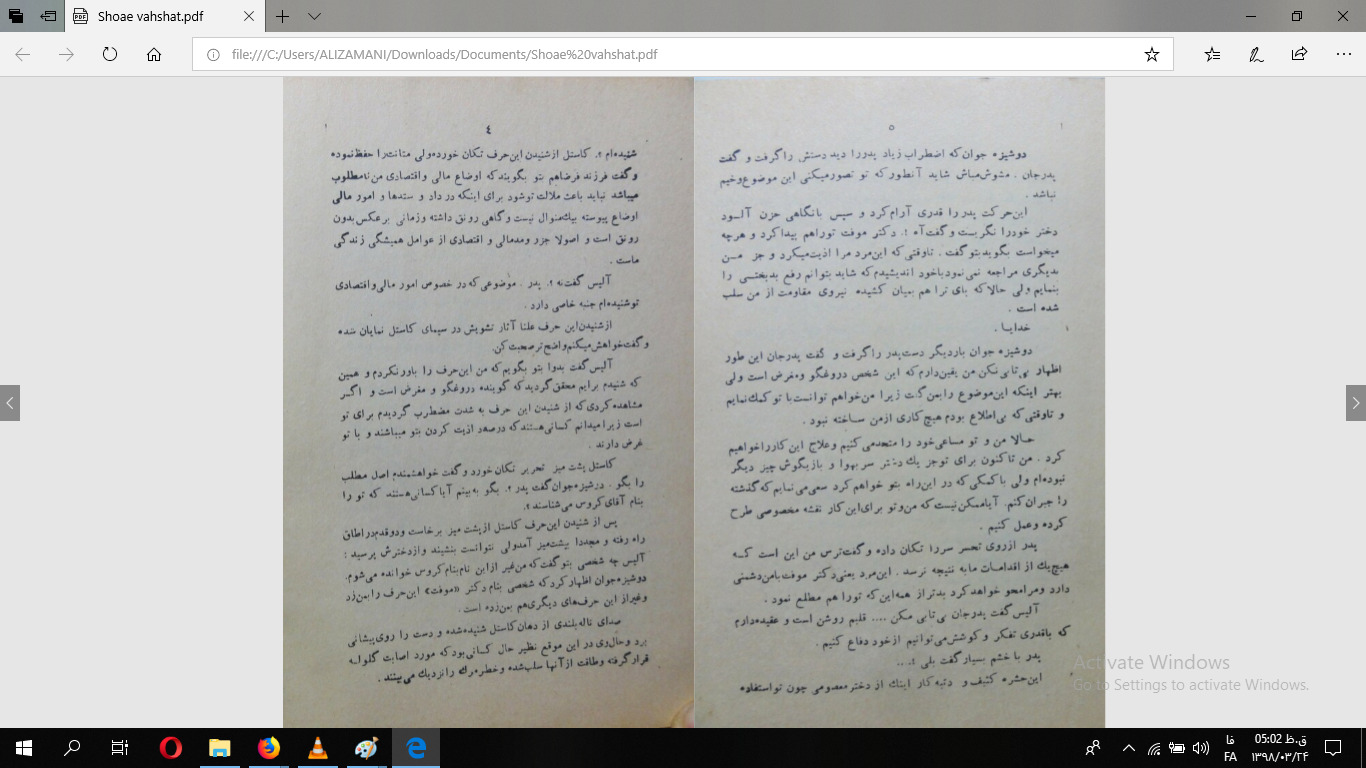 Shoae vahshat.pdf
file:///C:/Users/ALIZAMANI/Downloads/Documents/Shoae%20vahshat.pdf
٤
شنیده‌ام ؟. کاستل از شنیدن این حرف تکان خورده ولی متانت را حفظ نموده
وگفت فرزند فرضاهم بتو بگویند که اوضاع مالی و اقتصادی من نامطلوب
میباشد نباید باعث ملالت تو شود برای اینکه در داد و ستدها و امور مالی
اوضاع پیوسته بیك منوال نیست و گاهی رونق داشته و زمانی برعکس بدون
رونق است و اصولا جزر و مد مالی و اقتصادی از عوامل همیشگی زندگی
ماست .
آلیس گفت نه ؟. پدر . موضوعی که در خصوص امور مالی و اقتصادی
تو شنیده‌ام جنبه خاصی دارد .
از شنیدن این حرف علنا آثار تشویش در سیمای کاستل نمایان شده
و گفت خواهش میکنم واضح تر صحبت کن.
آلیس گفت بدوا بتو بگویم که من این حرف را باور نکردم و همین
که شنیدم برایم محقق گردید که گوینده دروغگو و مغرض است و اگر
مشاهده کردی که از شنیدن این حرف به شدت مضطرب گردیدم برای تو
است زیرا میدانم کسانی هستند که درصدد اذیت کردن بتو میباشند و با تو
غرض دارند .
کاستل پشت میز تحریر تکان خورد و گفت خواهشمندم اصل مطلب
را بگو . دوشیزه جوان گفت پدر ؟. بگو به بینم آیا کسانی هستند که تو را
بنام آقای کروس می‌شناسند ؟.
پس از شنیدن این حرف کاستل از پشت میز برخاست و دو قدم در اطاق
راه رفته و مجددا بپشت میز آمد ولی نتوانست بنشیند و از دخترش پرسید :
آلیس چه شخصی بتو گفت که من غیر از این نام بنام کروس خوانده می‌شوم.
دوشیزه جوان اظهار کرد که شخصی بنام دکتر «موفت» این حرف را بمن زد
و غیر از این حرف‌های دیگری هم بمن زده است .
صدای ناله بلندی از دهان کاستل شنیده شده و دست را روی پیشانی
برد و حال وی در این موقع نظیر حال کسانی بود که مورد اصابت گلوله
قرار گرفته و طاقت از آنها سلب شده و خطر مرك را نزدیك می بینند .
٥
دوشیزه جوان که اضطراب زیاد پدر را دید دستش را گرفت و گفت
پدرجان . مشوش مباش شاید آنطور که تو تصور میکنی این موضوع وخیم
نباشد .
این حرکت پدر را قدری آرام کرد و سپس با نگاهی حزن آلود
دختر خود را نگریست و گفت آه !. دکتر موفت تو را هم پیدا کرد و هرچه
میخواست بگوید بتو گفت . تا وقتی که این مرد مرا اذیت میکرد و جز من
بدیگری مراجعه نمی نمود با خود اندیشیدم که شاید بتوانم رفع بدبختی را
بنمایم ولی حالا که پای ترا هم بمیان کشیده نیروی مقاومت از من سلب
شده است .
خدایا .
دوشیزه جوان بار دیگر دست پدر را گرفت و گفت پدرجان این طور
اظهار بی تابی نکن من یقین دارم که این شخص دروغگو و مغرض است ولی
بهتر اینکه این موضوع را بمن گفت زیرا من خواهم توانست با تو کمك نمایم
و تا وقتی که بی اطلاع بودم هیچ کاری از من ساخته نبود .
حالا من و تو مساعی خود را متحد می کنیم و علاج این کار را خواهیم
کرد . من تاکنون برای تو جز یك دختر سر بهوا و بازیگوش چیز دیگر
نبوده‌ام ولی با کمکی که در این راه بتو خواهم کرد سعی می نمایم که گذشته
را جبران کنم. آیا ممکن نیست که من و تو برای این کار نقشه مخصوصی طرح
کرده و عمل کنیم .
پدر از روی تحسر سر را تکان داده و گفت ترس من این است که
هیچ یك از اقدامات ما به نتیجه نرسد . این مرد یعنی دکتر موفت با من دشمنی
دارد و مرا محو خواهد کرد بدتر از همه این که تو را هم مطلع نمود .
آلیس گفت پدرجان بی تابی مکن .... قلبم روشن است و عقیده دارم
که با قدری تفکر و کوشش می توانیم از خود دفاع کنیم .
پدر با خشم بسیار گفت بلی !....
این حشره کثیف و تبه کار اینك از دختر معصومی چون تو استفاده
Activate Windows
Go to Settings to activate Windows.
FA
فا
05:02 ق.ظ
۱۳۹۸/۰۳/۲۴